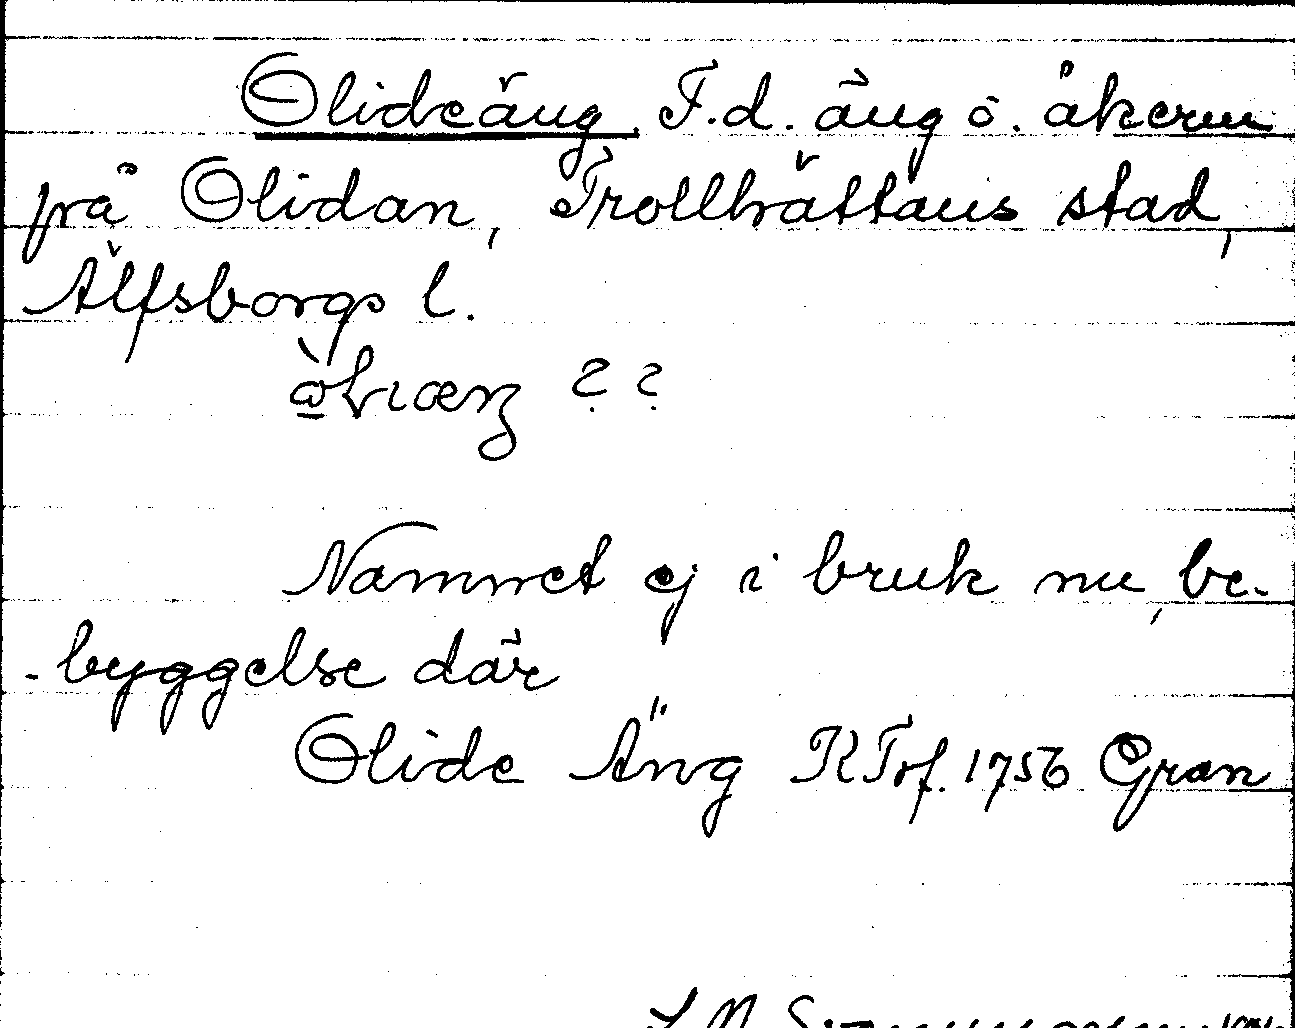 Olideäng F.d. äng ö. åkerm
på Olidan, Trollhättans stad,
Älfsborgs l.
? ?
Namnet ej i bruk nu, be-
-byggelse där
Olide Äng KTrf. 1756 Gran